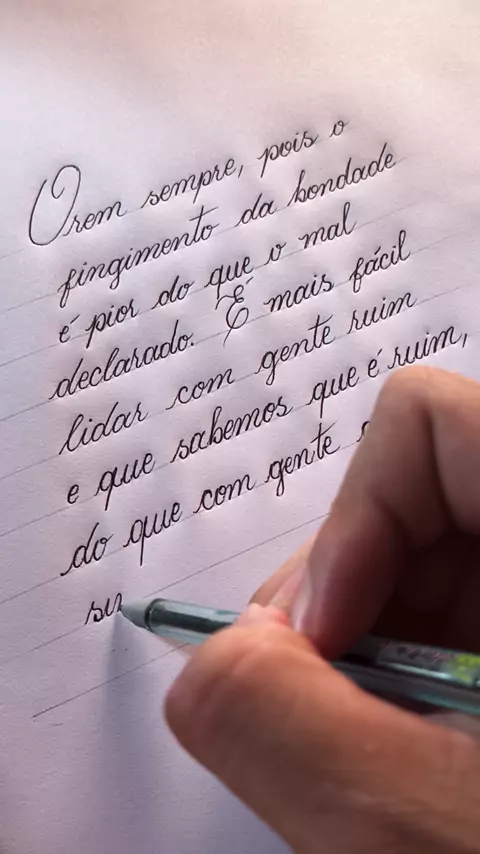 Orem sempre, pois o
fingimento da bondade
é pior do que o mal
declarado. É mais fácil
lidar com gente ruim
e que sabemos que é ruim,
do que com gente
su